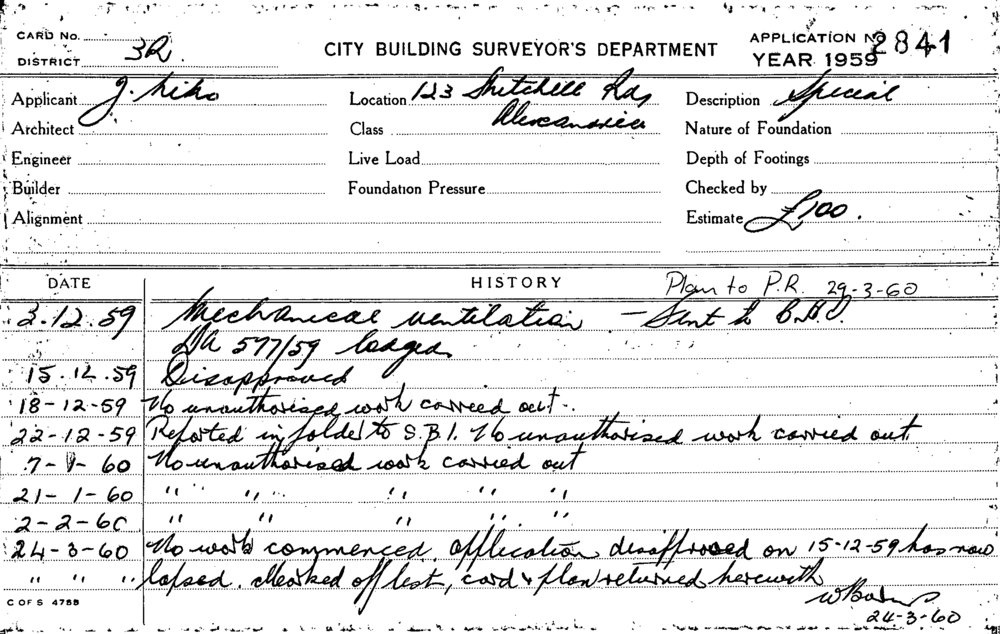 CARD No.
DISTRICT 3R.
CITY BUILDING SURVEYOR'S DEPARTMENT
APPLICATION No 2841
YEAR 1959
Applicant J.
Location 123 Mitchell Rd,
Alexandria
Description Special
Architect
Class
Nature of Foundation
Engineer
Live Load
Depth of Footings
Builder
Foundation Pressure
Checked by
Alignment
Estimate £100.
DATE
HISTORY
Plan to P.R. 29-3-60
3.12.59 Mechanical ventilation - Sent to
DA 577/59 lodged
15.12.59 Disapproved
18-12-59 No unauthorised work carried out.
22-12-59 Reported in folder to S.B.I. No unauthorised work carried out
7-1-60 No unauthorised work carried out
21-1-60 " " " " "
2-2-60 " " " " "
24-3-60 No work commenced. Application disapproved on 15-12-59 has now
" " " lapsed. Marked off list, card & plan returned herewith
24-3-60
C OF S 4758